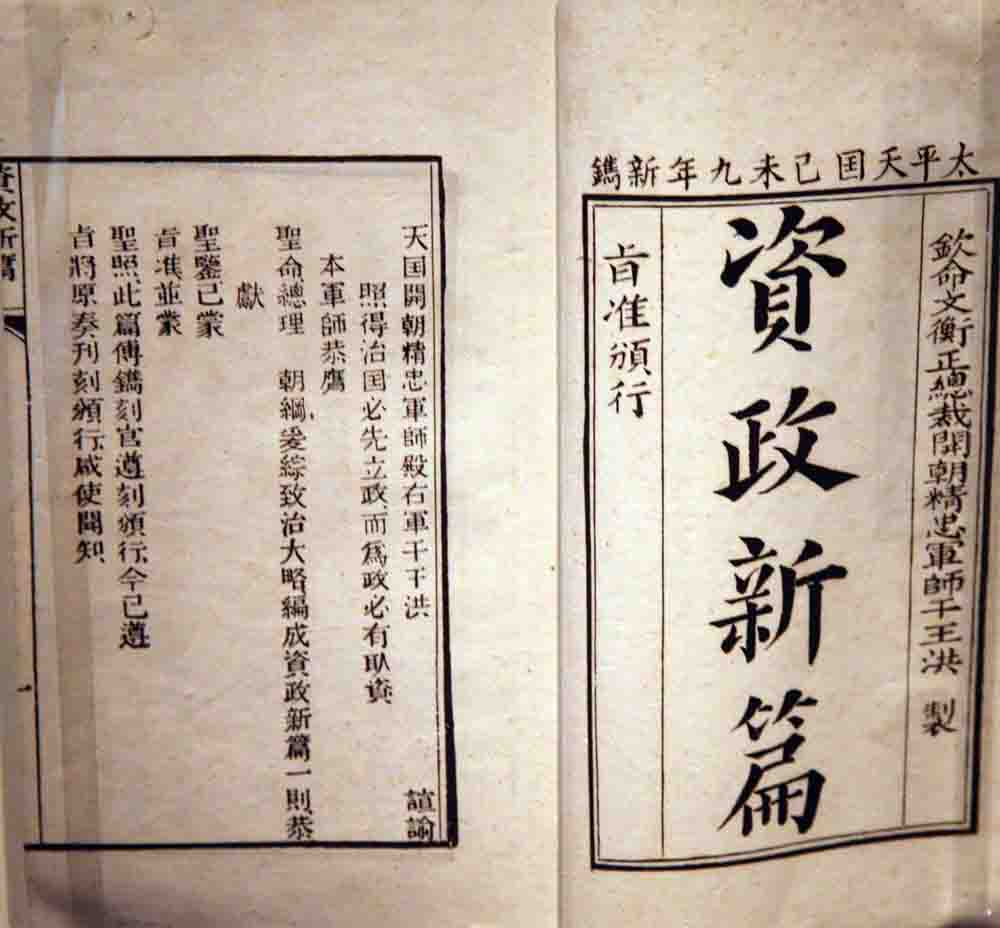 太平天囯己未九年新鐫
欽命文衡正總裁開朝精忠軍師干王洪 製
資政新篇
旨准頒行
天囯開朝精忠軍師殿右軍干王洪 諠諭
照得治囯必先立政而爲政必有取資
本軍師恭膺
聖命總理 朝綱爰綜致治大略編成資政新篇一則恭
獻
聖鑒已蒙
旨准並蒙
聖照此篇傳鐫刻官遵刻頒行今已遵
旨將原奏刊刻頒行咸使聞知
資政新篇